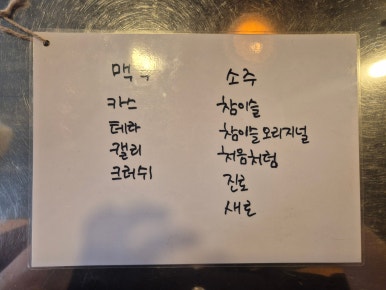 맥
카스
테라
캘리
크러쉬
소주
참이슬
참이슬 오리지널
처음처럼
진로
새로